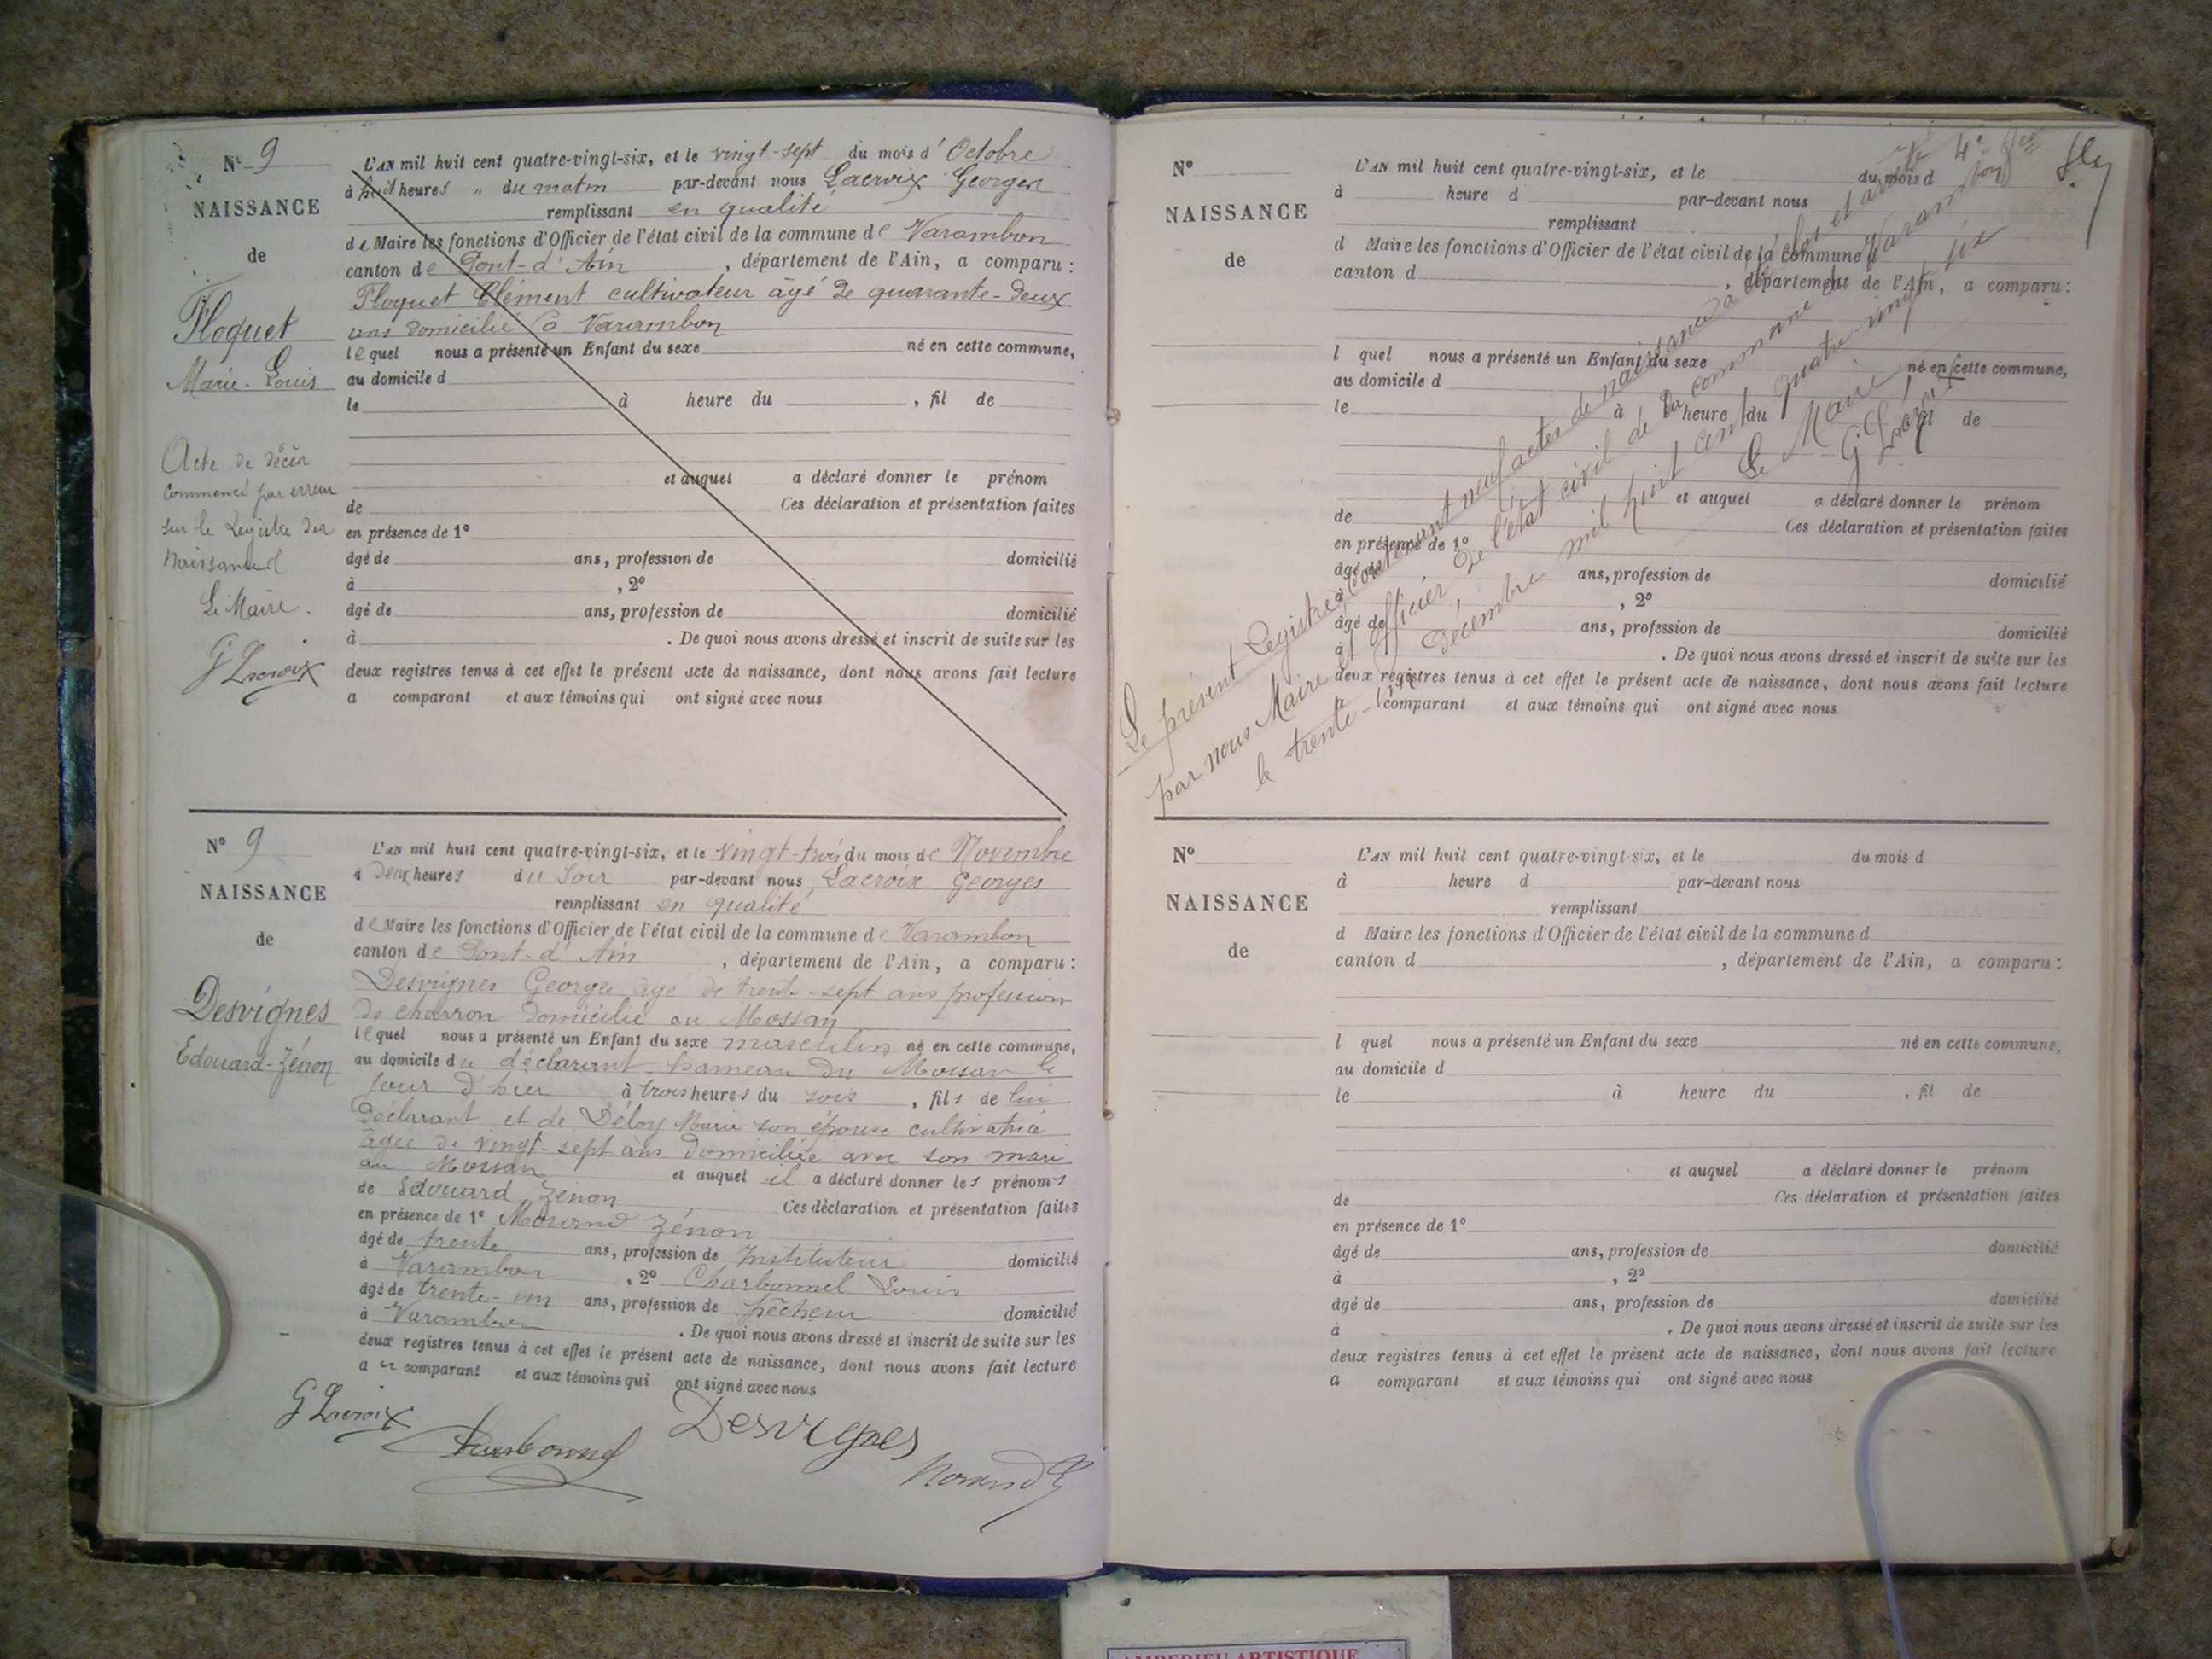 Nº 9
NAISSANCE
de
Floquet
Marie-Louis
Acte de décès
commencé par erreur
sur le Registre des
Naissances
Le Maire.
G Lacroix
L'AN mil huit cent quatre-vingt-six, et le vingt-sept du mois d'Octobre
à huit heures " du matin par-devant nous Lacroix Georges
remplissant en qualité
de Maire les fonctions d'Officier de l'état civil de la commune de Varambon
canton de Pont-d'Ain, département de l'Ain, a comparu :
Floquet Clément cultivateur âgé de quarante-deux
ans domicilié à Varambon
lequel nous a présenté un Enfant du sexe né en cette commune,
au domicile d
le à heure du , fil de
et auquel a déclaré donner le prénom
de Ces déclaration et présentation faites
en présence de 1º
âgé de ans, profession de domicilié
à , 2º
âgé de ans, profession de domicilié
à . De quoi nous avons dressé et inscrit de suite sur les
deux registres tenus à cet effet le présent acte de naissance, dont nous avons fait lecture
a comparant et aux témoins qui ont signé avec nous
Nº 9
NAISSANCE
de
Desvignes
Edouard-Zénon
L'AN mil huit cent quatre-vingt-six, et le vingt-trois du mois de Novembre
à deux heures du soir par-devant nous Lacroix Georges
remplissant en qualité
de Maire les fonctions d'Officier de l'état civil de la commune de Varambon
canton de Pont-d'Ain, département de l'Ain, a comparu :
Desvignes Georges âgé de trente-sept ans profession
de charron domicilié au Mossan
lequel nous a présenté un Enfant du sexe masculin né en cette commune,
au domicile du déclarant hameau du Mossan le
jour d'hier à trois heures du soir, fils de lui
déclarant et de Déloy Marie son épouse cultivatrice
âgée de vingt-sept ans domiciliée avec son mari
au Mossan et auquel il a déclaré donner les prénoms
de Edouard Zénon Ces déclaration et présentation faites
en présence de 1º Morand Zénon
âgé de trente ans, profession de Instituteur domicilié
à Varambon, 2º Charbonnel Louis
âgé de trente-un ans, profession de pêcheur domicilié
à Varambon. De quoi nous avons dressé et inscrit de suite sur les
deux registres tenus à cet effet le présent acte de naissance, dont nous avons fait lecture
au comparant et aux témoins qui ont signé avec nous
G Lacroix Charbonnel Desvignes Morand Z
Nº
NAISSANCE
de
L'AN mil huit cent quatre-vingt-six, et le du mois d
à heure d par-devant nous
remplissant
d Maire les fonctions d'Officier de l'état civil de la commune d
canton d , département de l'Ain, a comparu :
l quel nous a présenté un Enfant du sexe né en cette commune,
au domicile d
le à heure du , fil de
et auquel a déclaré donner le prénom
de Ces déclaration et présentation faites
en présence de 1º
âgé de ans, profession de domicilié
à , 2º
âgé de ans, profession de domicilié
à . De quoi nous avons dressé et inscrit de suite sur les
deux registres tenus à cet effet le présent acte de naissance, dont nous avons fait lecture
a comparant et aux témoins qui ont signé avec nous
Le présent Registre contenant neuf actes de naissance a été clos et arrêté
par nous Maire et officier de l'état civil de la commune de Varambon
le trente-un décembre mil huit cent quatre-vingt-six
Le Maire
G Lacroix
Nº
NAISSANCE
de
L'AN mil huit cent quatre-vingt-six, et le du mois d
à heure d par-devant nous
remplissant
d Maire les fonctions d'Officier de l'état civil de la commune d
canton d , département de l'Ain, a comparu :
l quel nous a présenté un Enfant du sexe né en cette commune,
au domicile d
le à heure du , fil de
et auquel a déclaré donner le prénom
de Ces déclaration et présentation faites
en présence de 1º
âgé de ans, profession de domicilié
à , 2º
âgé de ans, profession de domicilié
à . De quoi nous avons dressé et inscrit de suite sur les
deux registres tenus à cet effet le présent acte de naissance, dont nous avons fait lecture
a comparant et aux témoins qui ont signé avec nous
AMBERIEU ARTISTIQUE